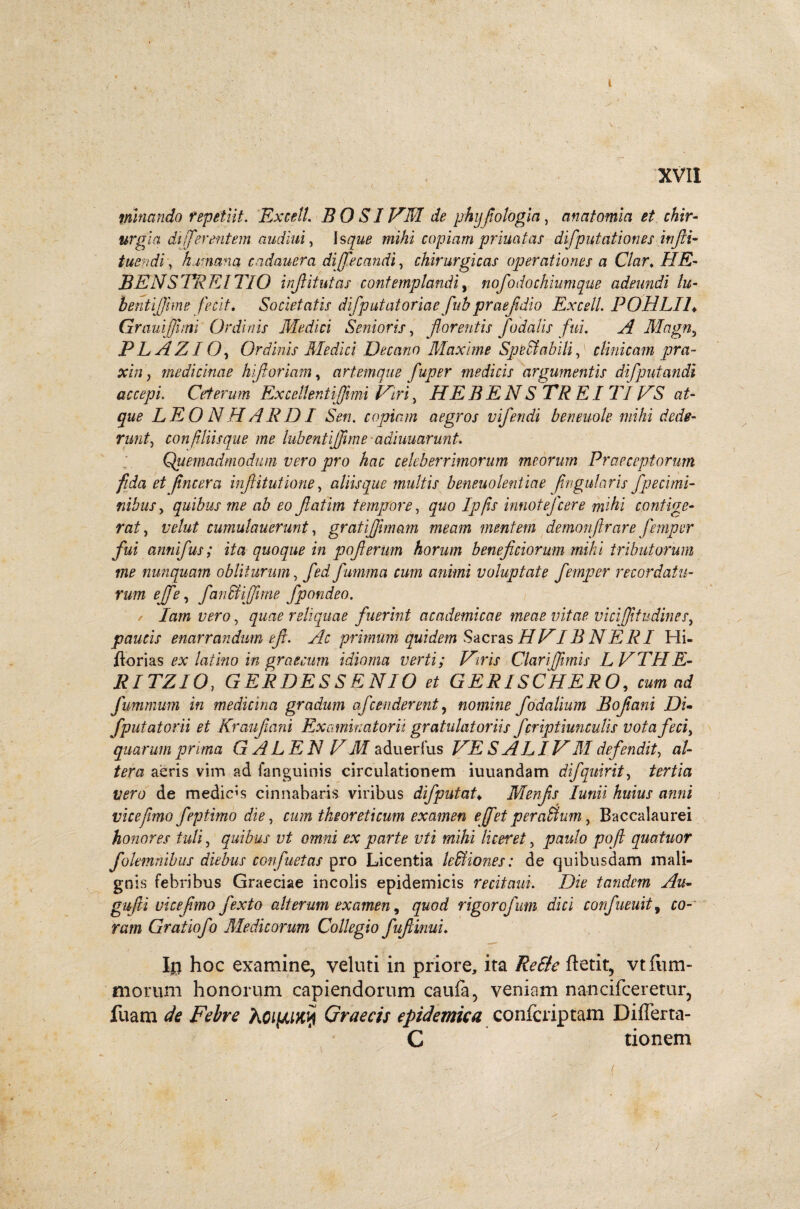 XVII
minando repetiit. Excell. BOSIVM de phyſiologia, anatomia et chir-
urgia diſſerentem audiui, Isque mihi copiam priuatas diſputationes inſti-
tuendi, humana cadauera diſſecandi, chirurgicas operationes a Clar. HE-
BENSTREITIO inſtitutas contemplandi, noſodochiumque adeundi lu-
bentiſſime fecit. Societatis diſputatoriae ſub praeſidio Excell. POHLII.
Grauiſſimi Ordinis Medici Senioris, florentis ſodalis fui. A Magn.
PLAZIO, Ordinis Medici Decano Maxime Spectabili, clinicam pra-
xin, medicinae hiſtoriam, artemque ſuper medicis argumentis diſputandi
accepi. Ceterum Excellentiſſimi Viri, HEBENSTREITIVS at-
que LEONHARDI Sen. copiam aegros viſendi beneuole mihi dede-
runt, conſiliisque me lubentiſſime adiuuarunt.
Quemadmodum vero pro hac celeberrimorum meorum Praeceptorum
fida et ſincera inſtitutione, aliisque multis beneuolentiae ſingularis ſpecimi-
nibus, quibus me ab eo ſtatim tempore, quo Ipſis innoteſcere mihi contige-
rat, velut cumulauerunt, gratiſſimam meam mentem demonſtrare ſemper
fui anniſus; ita quoque in poſterum horum beneficiorum mihi tributorum
me nunquam obliturum, ſed ſumma cum animi voluptate ſemper recordatu-
rum eſſe, ſanctiſſime ſpondeo.
Iam vero, quae reliquae fuerint academicae meae vitae viciſſitudines,
paucis enarrandum eſt. Ac primum quidem Sacras HVIBNERI Hi-
ſtorias ex latino in graecum idioma verti; Viris Clariſſimis LVTHE-
RITZIO, GERDESSENIO et GERISCHERO, cum ad
ſummum in medicina gradum aſcenderent, nomine ſodalium Boſiani Di-
ſputatorii et Krauſiani Examinatorii gratulatoriis ſcriptiunculis vota feci,
quarum prima GALENVM aduerſus VESALIVM defendit, al-
tera aëris vim ad ſanguinis circulationem iuuandam diſquirit, tertia
vero de medicis cinnabaris viribus diſputat. Menſis Iunii huius anni
viceſimo ſeptimo die, cum theoreticum examen eſſet peractum, Baccalaurei
honores tuli, quibus vt omni ex parte vti mihi liceret, paulo poſt quatuor
ſolemnibus diebus conſuetas pro Licentia lectiones: de quibusdam mali-
gnis febribus Graeciae incolis epidemicis recitaui. Die tandem Au-
guſti viceſimo ſexto alterum examen, quod rigoroſum dici conſueuit, co-
ram Gratioſo Medicorum Collegio ſuſtinui.
In hoc examine, veluti in priore, ita Recte ſtetit, vt ſum-
morum honorum capiendorum cauſa, veniam nanciſceretur,
ſuam de Febre λοιμικῇ Graecis epidemica conſcriptam Diſſerta-
C tionem